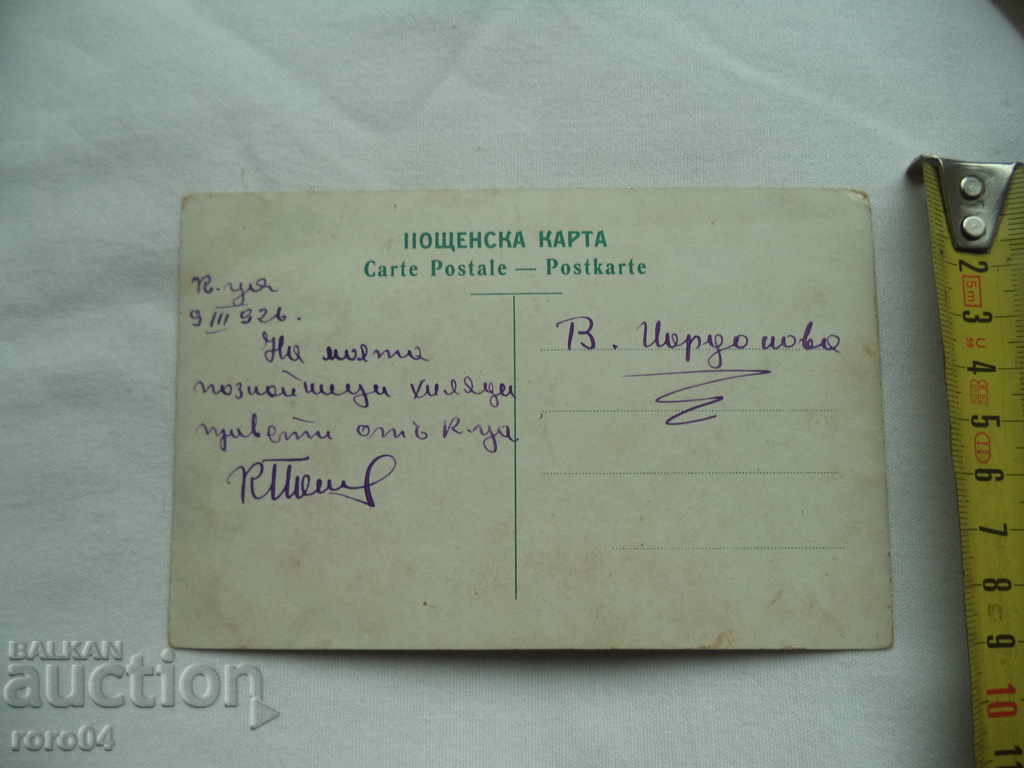 ПОЩЕНСКА КАРТА
Carte Postale — Postkarte
К-ца
9 III 926.
На моята
познайница хиляди
привети отъ К-ца
В. Йорданова
BALKAN
auction
roro04
2
5m
3
4
5
II
6
7
8
CE
9
10
11